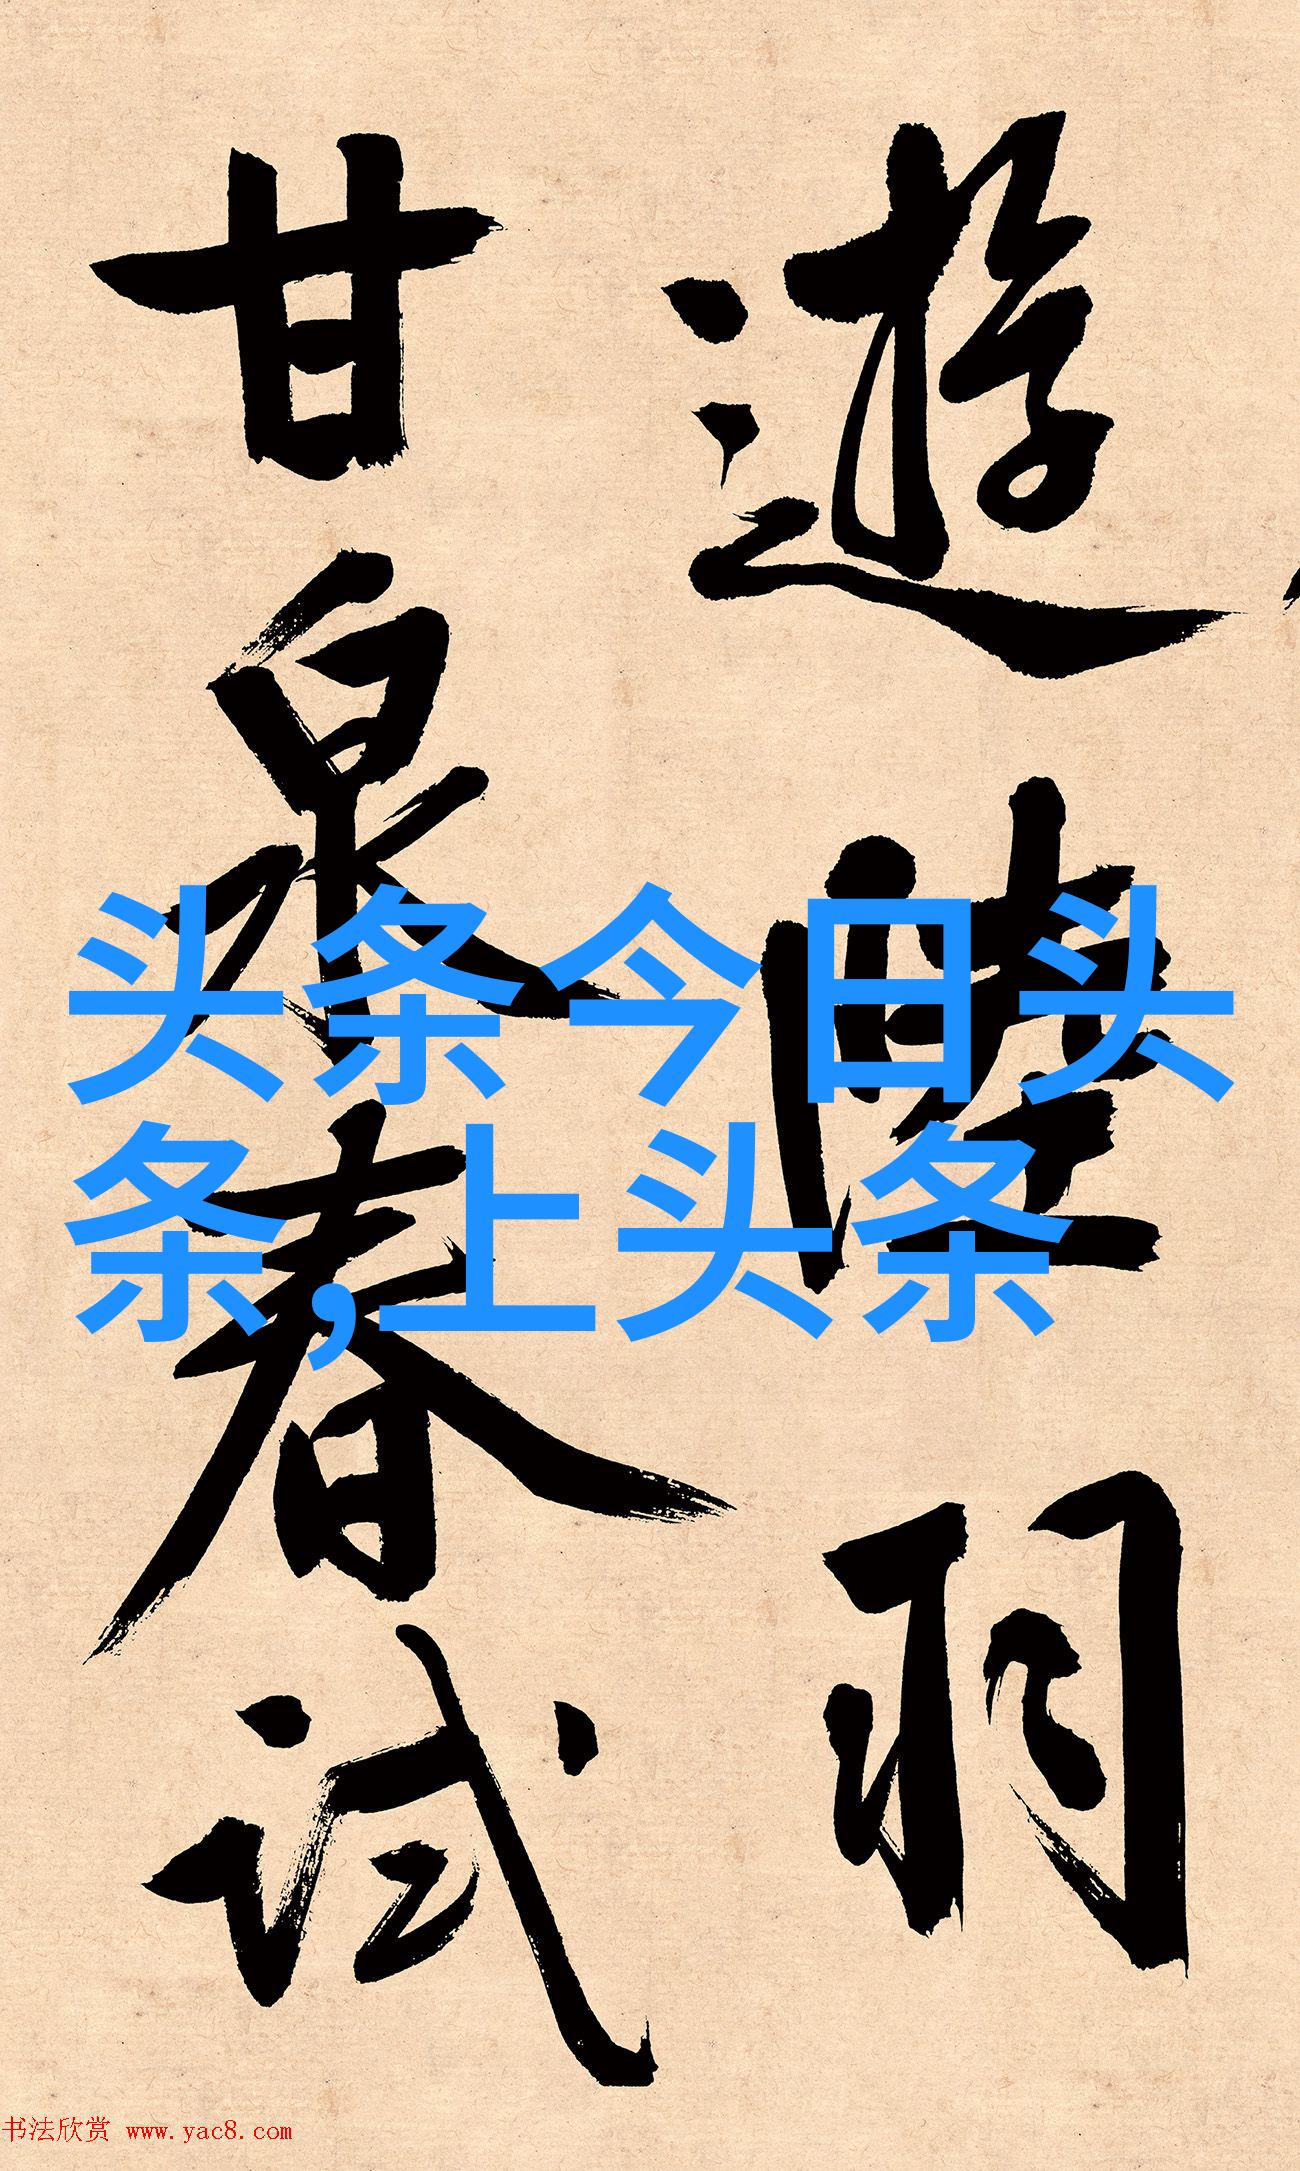 遊陸羽
甘泉春試
头条今日头
条,上头条
书法欣赏 www.yac8.com